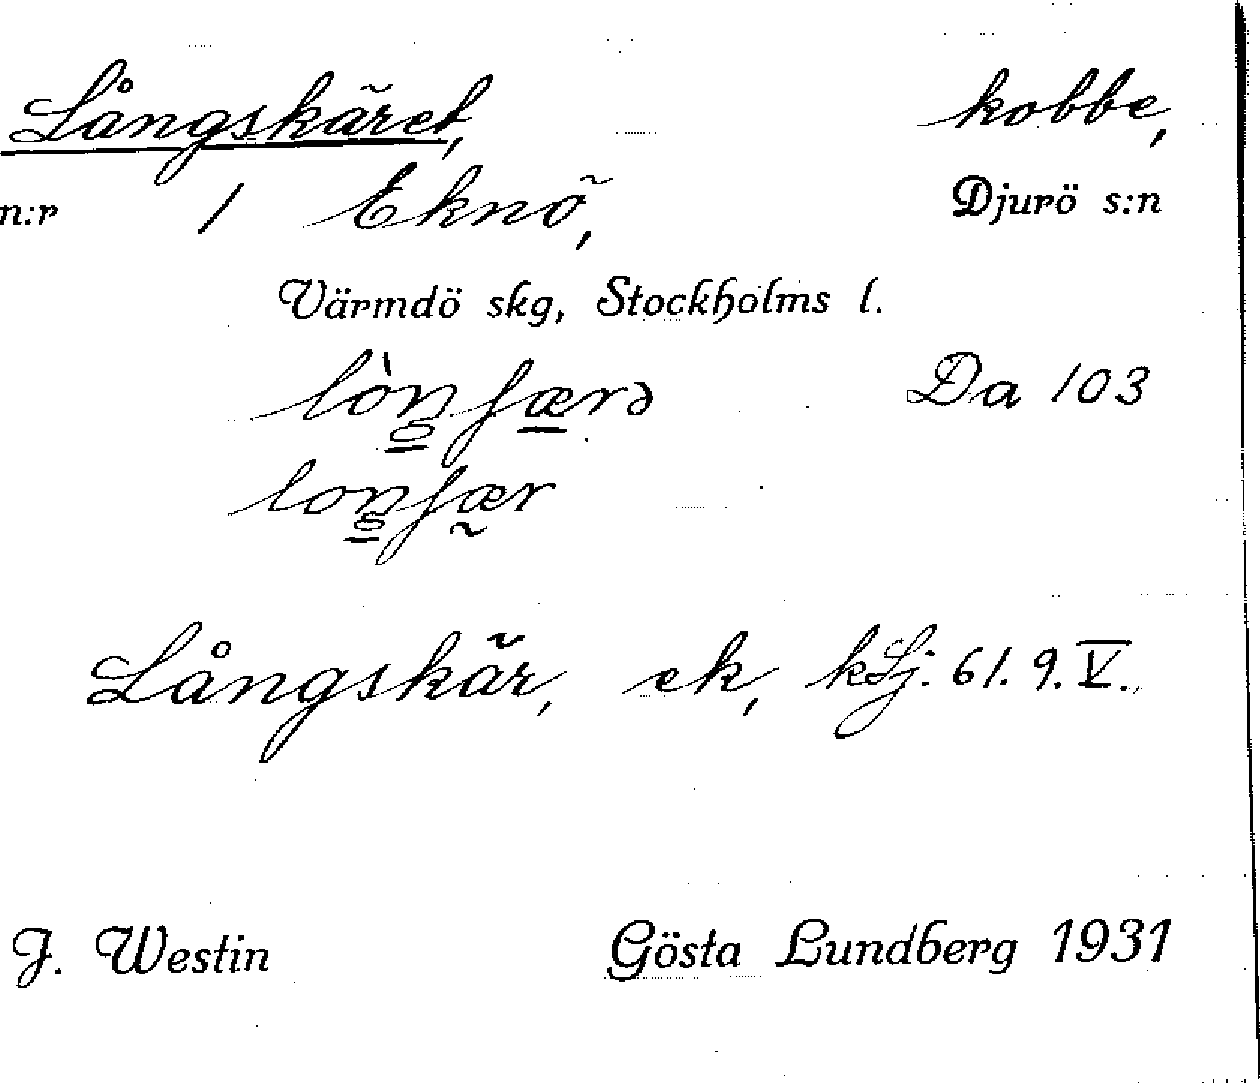 Långskäret, kobbe,
n:r 1 Eknö, Djurö s:n
Värmdö skg, Stockholms l.
Da 103
Långskär, ek, kLj: 61. 9. V.
J. Westin Gösta Lundberg 1931